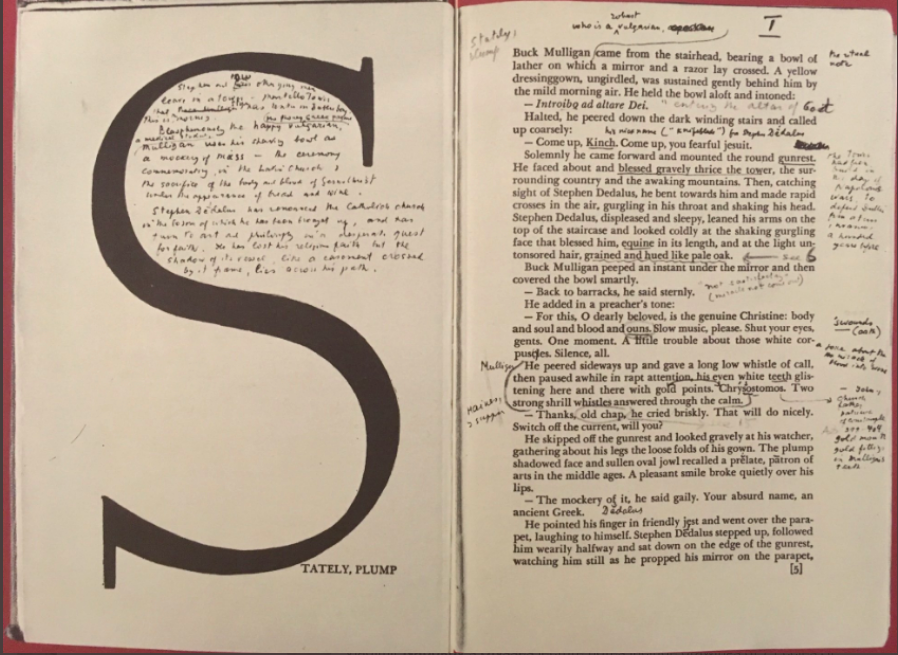 S
TATELY, PLUMP
Stephen and
This is
the happy vulgarian,
Mulligan uses his shaving bowl as
a mockery of mass — the ceremony
commemorating, in the Latin Church,
the sacrifice of the body and blood of
under the appearance of bread and wine.
Stephen Dédalus has renounced the Catholic church
in the bosom of which he has been brought up, and has
turned to art and philosophy in a desperate quest
for faith. He has lost his religious faith but the
shadow of its vessel, like a casement crossed
by its frame, lies across his path.
what
who is a vulgarian,
I
Stately,
plump
Buck Mulligan came from the stairhead, bearing a bowl of
lather on which a mirror and a razor lay crossed. A yellow
dressinggown, ungirdled, was sustained gently behind him by
the mild morning air. He held the bowl aloft and intoned:
— Introibo ad altare Dei. "entering the altar of God
Halted, he peered down the dark winding stairs and called
up coarsely: his nickname ("Knifeblade") for Stephen Dédalus
— Come up, Kinch. Come up, you fearful jesuit.
Solemnly he came forward and mounted the round gunrest.
He faced about and blessed gravely thrice the tower, the sur-
rounding country and the awaking mountains. Then, catching
sight of Stephen Dedalus, he bent towards him and made rapid
crosses in the air, gurgling in his throat and shaking his head.
Stephen Dedalus, displeased and sleepy, leaned his arms on the
top of the staircase and looked coldly at the shaking gurgling
face that blessed him, equine in its length, and at the light un-
tonsored hair, grained and hued like pale oak. see 6
Buck Mulligan peeped an instant under the mirror and then
covered the bowl smartly.
— Back to barracks, he said sternly.
He added in a preacher's tone:
— For this, O dearly beloved, is the genuine Christine: body
and soul and blood and ouns. Slow music, please. Shut your eyes,
gents. One moment. A little trouble about those white cor-
puscles. Silence, all.
Mulligan
He peered sideways up and gave a long low whistle of call,
then paused awhile in rapt attention, his even white teeth glis-
tening here and there with gold points. Chrysostomos. Two
strong shrill whistles answered through the calm.
— Thanks, old chap, he cried briskly. That will do nicely.
Switch off the current, will you?
He skipped off the gunrest and looked gravely at his watcher,
gathering about his legs the loose folds of his gown. The plump
shadowed face and sullen oval jowl recalled a prelate, patron of
arts in the middle ages. A pleasant smile broke quietly over his
lips.
— The mockery of it, he said gaily. Your absurd name, an
ancient Greek. Dédalus
He pointed his finger in friendly jest and went over the para-
pet, laughing to himself. Stephen Dedalus stepped up, followed
him wearily halfway and sat down on the edge of the gunrest,
watching him still as he propped his mirror on the parapet,
[5]
the
note
the Tower
had been
build in
the day of
Napoleonic
wars, to
defend Dublin
from a
invasion
a hundred
years before
swounds
(oath)
— John,
Church
father,
patriarch
of Constantinople
gold mouth
gold fillings
in Mulligan's
teeth